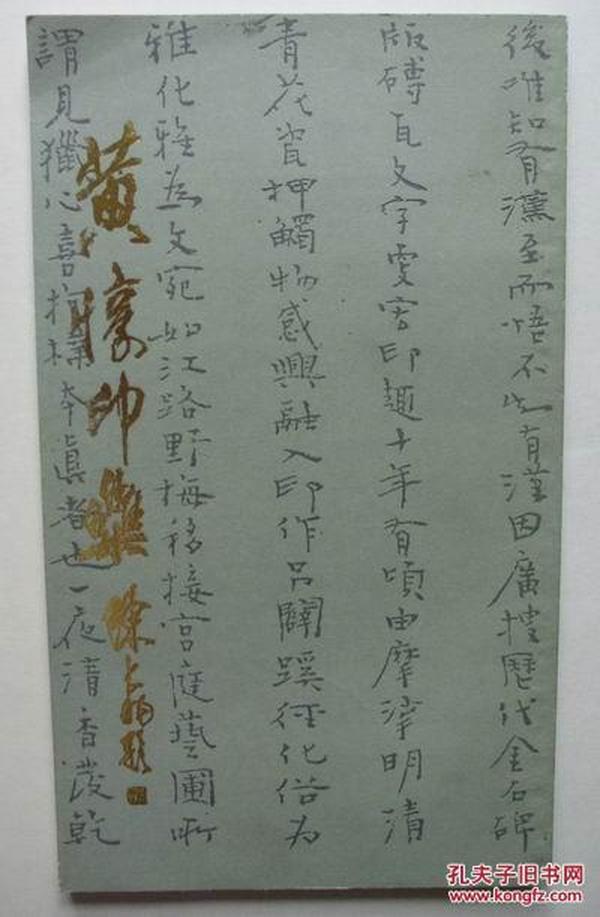 後唯知有漢至而悟不必有漢因廣搜歷代金石碑
版磚瓦文字更窮印趣十年有頃由摩潭明清
青花瓷押觸物感興融入印作另闢蹊徑化俗為
雅化雅為文宛如江路野梅移接宮庭藝圃所
謂見獵心喜抱樸本真者也一展清香發乾
黃惇印集
徐
題
孔夫子旧书网
www.kongfz.com